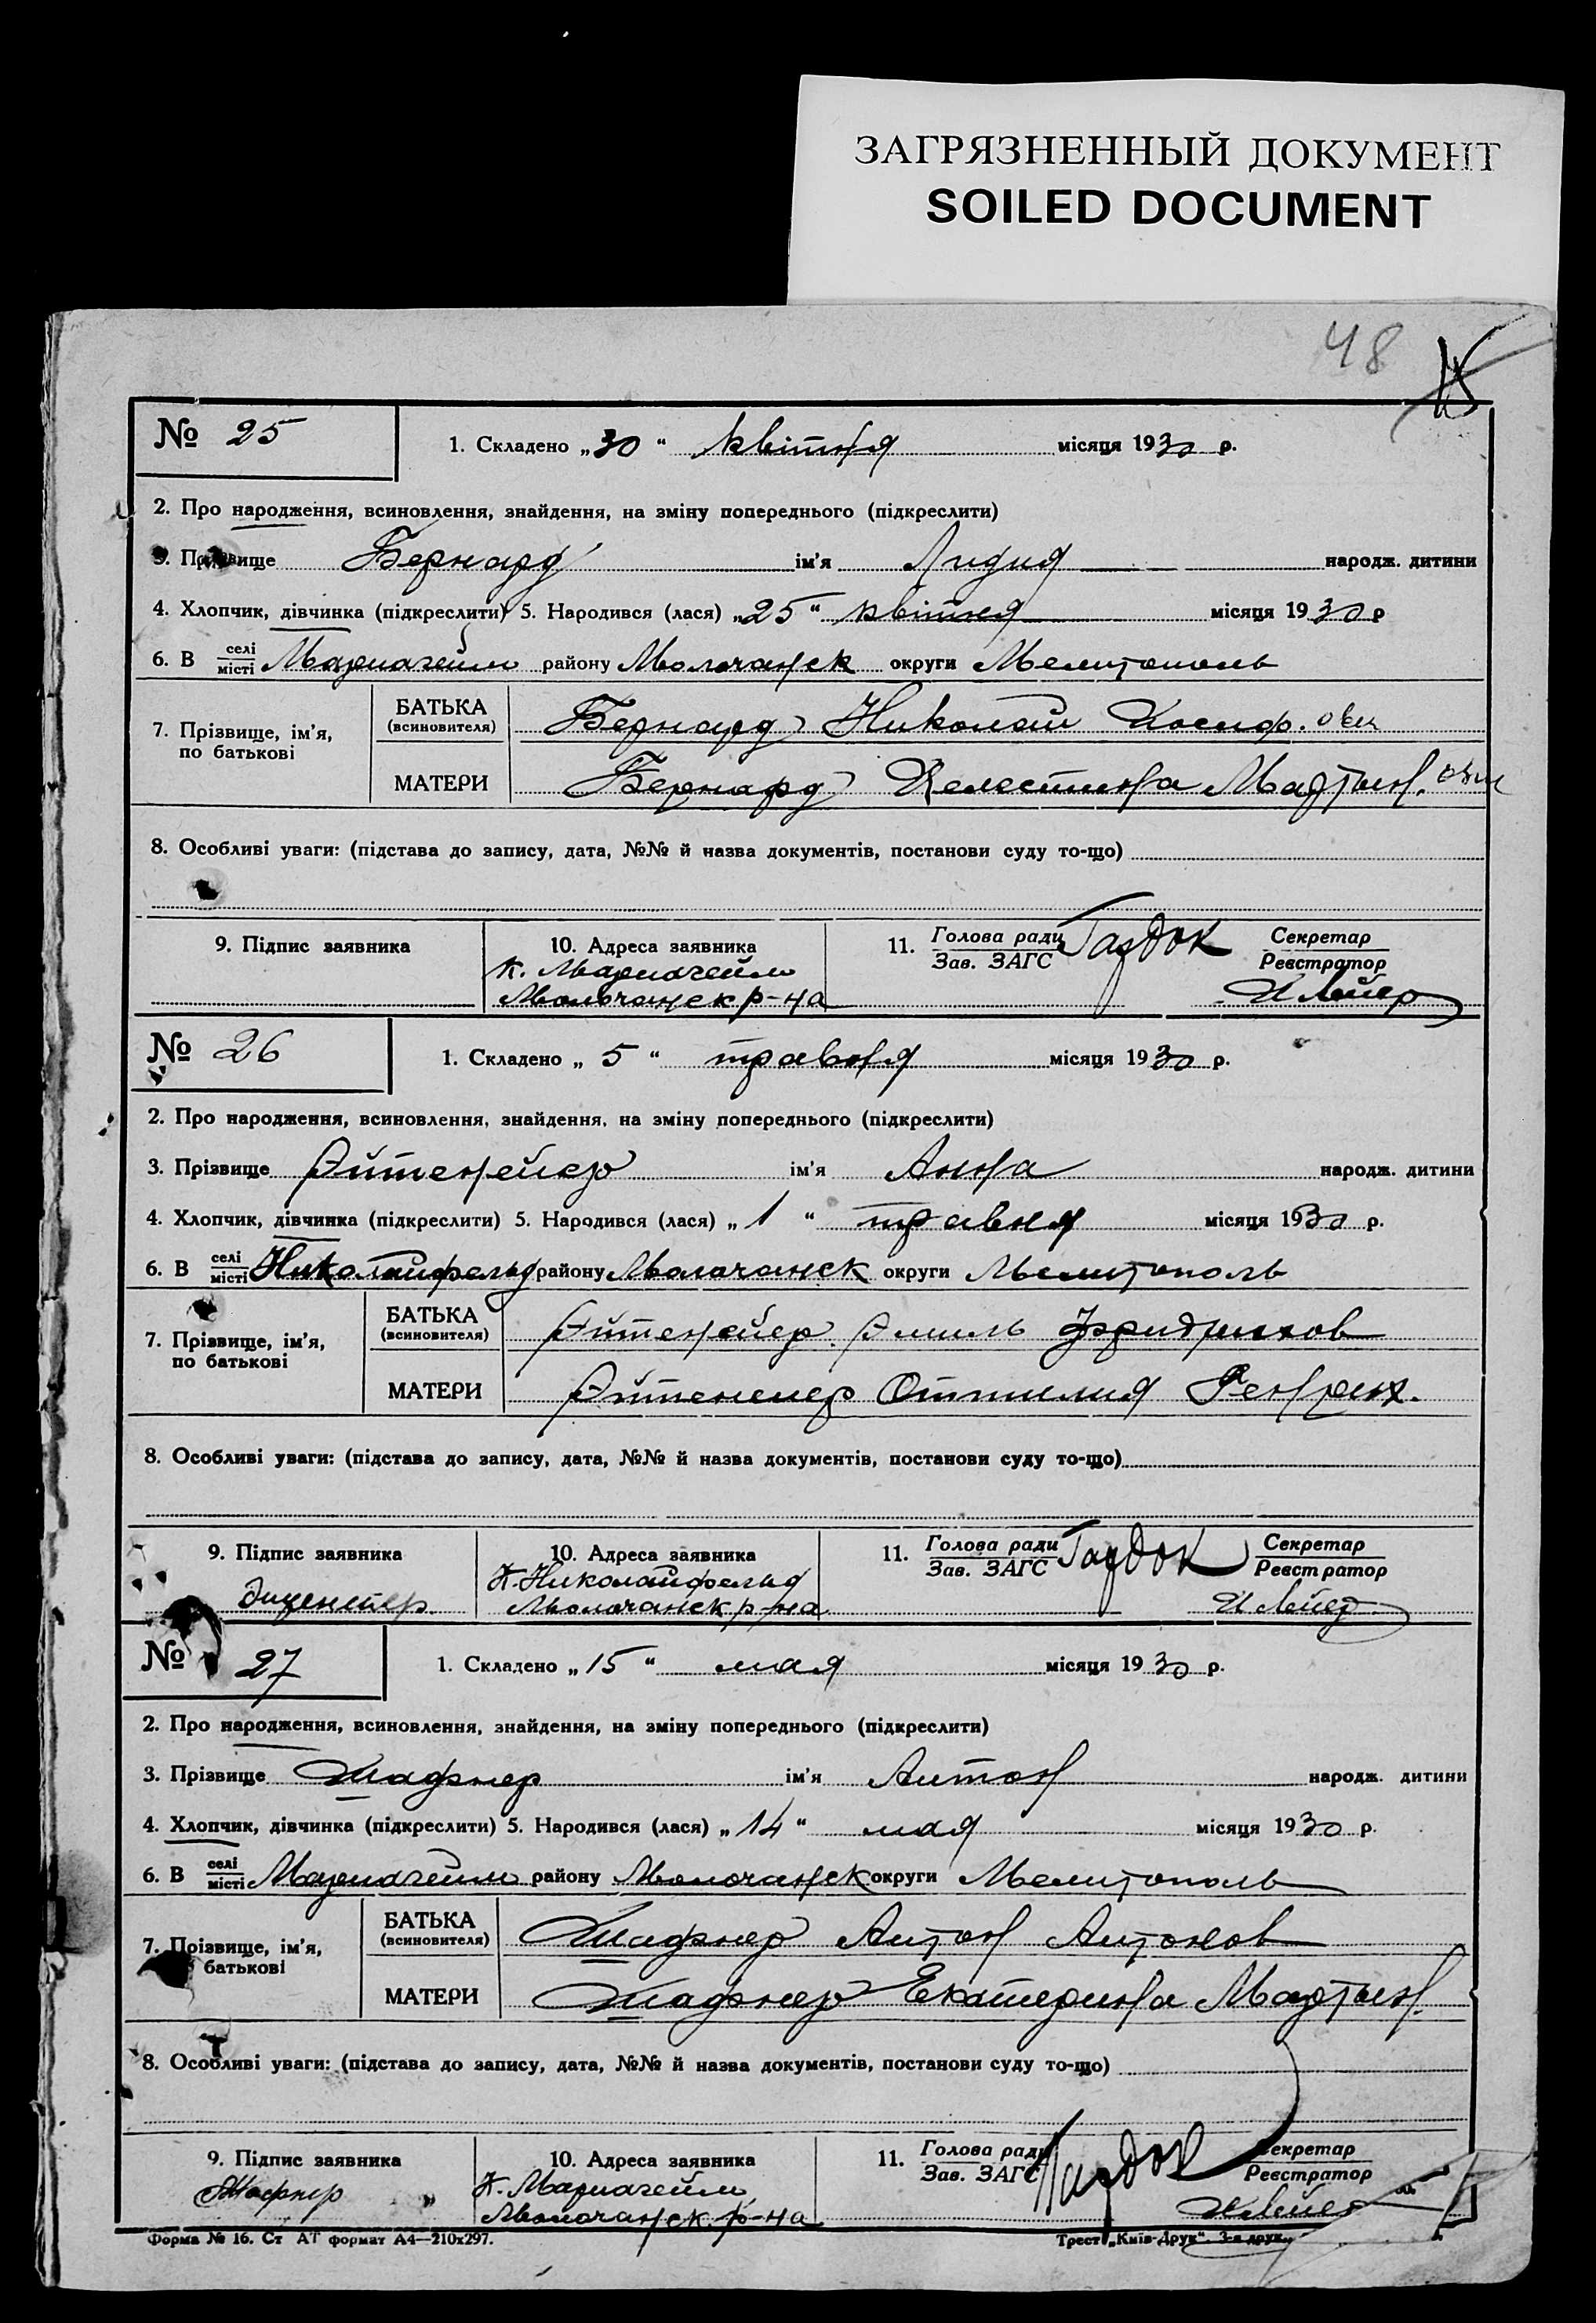 ЗАГРЯЗНЕННЫЙ ДОКУМЕНТ
SOILED DOCUMENT
48
№ 25
1. Складено „30“ квітня місяця 1930 р.
2. Про народження, всиновлення, знайдення, на зміну попереднього (підкреслити)
3. Прізвище Бернард ім'я Лидия народж. дитини
4. Хлопчик, дівчинка (підкреслити) 5. Народився (лася) „25“ квітня місяця 1930 р
6. В селі місті Мариагейм району Молочанск округи Мелитополь
7. Прізвище, ім'я, по батькові
БАТЬКА (всиновителя) Бернард Николай Иосиф. ович
МАТЕРИ Бернард Целестина Мартын. овн
8. Особливі уваги: (підстава до запису, дата, №№ й назва документів, постанови суду то-що)
9. Підпис заявника
10. Адреса заявника
к. Мариагейм
Молочанск р-на
11. Голова ради Зав. ЗАГС
Секретар Реєстратор
И Лейер
№ 26
1. Складено „ 5 “ травня місяця 1930 р.
2. Про народження, всиновлення, знайдення, на зміну попереднього (підкреслити)
3. Прізвище Эйтенейер ім'я Анна народж. дитини
4. Хлопчик, дівчинка (підкреслити) 5. Народився (лася) „ 1 “ травня місяця 1930 р.
6. В селі місті Николайфельд району Молочанск округи Мелитополь
7. Прізвище, ім'я, по батькові
БАТЬКА (всиновителя) Эйтенейер Эмиль Фридрихов
МАТЕРИ Эйтенеиер Оттилия Генрих.
8. Особливі уваги: (підстава до запису, дата, №№ й назва документів, постанови суду то-що)
9. Підпис заявника
10. Адреса заявника
К. Николайфельд
Молочанск р-на
11. Голова ради Зав. ЗАГС
Секретар Реєстратор
И Лейер
№ 27
1. Складено „ 15 “ мая місяця 1930 р.
2. Про народження, всиновлення, знайдення, на зміну попереднього (підкреслити)
3. Прізвище Шафнер ім'я Антон народж. дитини
4. Хлопчик, дівчинка (підкреслити) 5. Народився (лася) „ 14 “ мая місяця 1930 р.
6. В селі місті Мариагейм району Молочанск округи Мелитополь
7. Прізвище, ім'я, батькові
БАТЬКА (всиновителя) Шафнер Антон Антонов
МАТЕРИ Шафнер Екатерина Мартын.
8. Особливі уваги: (підстава до запису, дата, №№ й назва документів, постанови суду то-що)
9. Підпис заявника
Шафнер
10. Адреса заявника
К. Мариагейм
Молочанск. р-на
11. Голова ради Зав. ЗАГС
Секретар Реєстратор
И Лейер
Форма № 16. Ст АТ формат А4—210х297.
Трест „Київ-Друк“. 3-я друк.